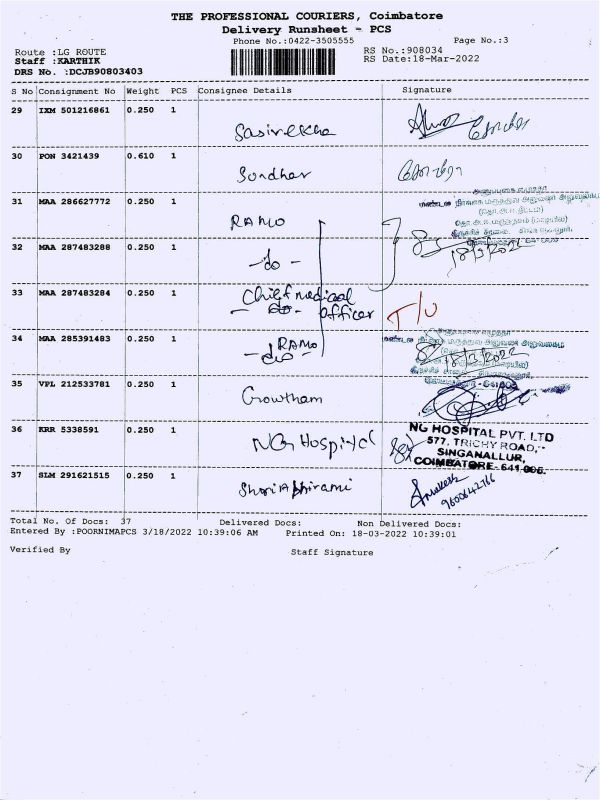 THE PROFESSIONAL COURIERS, Coimbatore
Delivery Runsheet - PCS
Phone No.:0422-3505555
Page No.:3
Route :LG ROUTE
RS No.:908034
Staff :KARTHIK
RS Date:18-Mar-2022
DRS No. :DCJB90803403
S No Consignment No Weight PCS Consignee Details Signature
29 IXM 501216861 0.250 1
Sasirekha
30 PON 3421439 0.610 1
Sundhar
31 MAA 286627772 0.250 1
RAMO
32 MAA 287483288 0.250 1
- do -
18/3/2022
33 MAA 287483284 0.250 1
Chief medical
- do - officer
T/O
34 MAA 285391483 0.250 1
RAMO
- do -
18/3/2022
35 VPL 212533781 0.250 1
Gowtham
36 KRR 5338591 0.250 1
NG Hospital
NG HOSPITAL PVT. LTD
577, TRICHY ROAD,
SINGANALLUR,
COIMBATORE-641 005.
37 SLM 291621515 0.250 1
9600642766
Total No. Of Docs: 37 Delivered Docs: Non Delivered Docs:
Entered By :POORNIMAPCS 3/18/2022 10:39:06 AM Printed On: 18-03-2022 10:39:01
Verified By Staff Signature